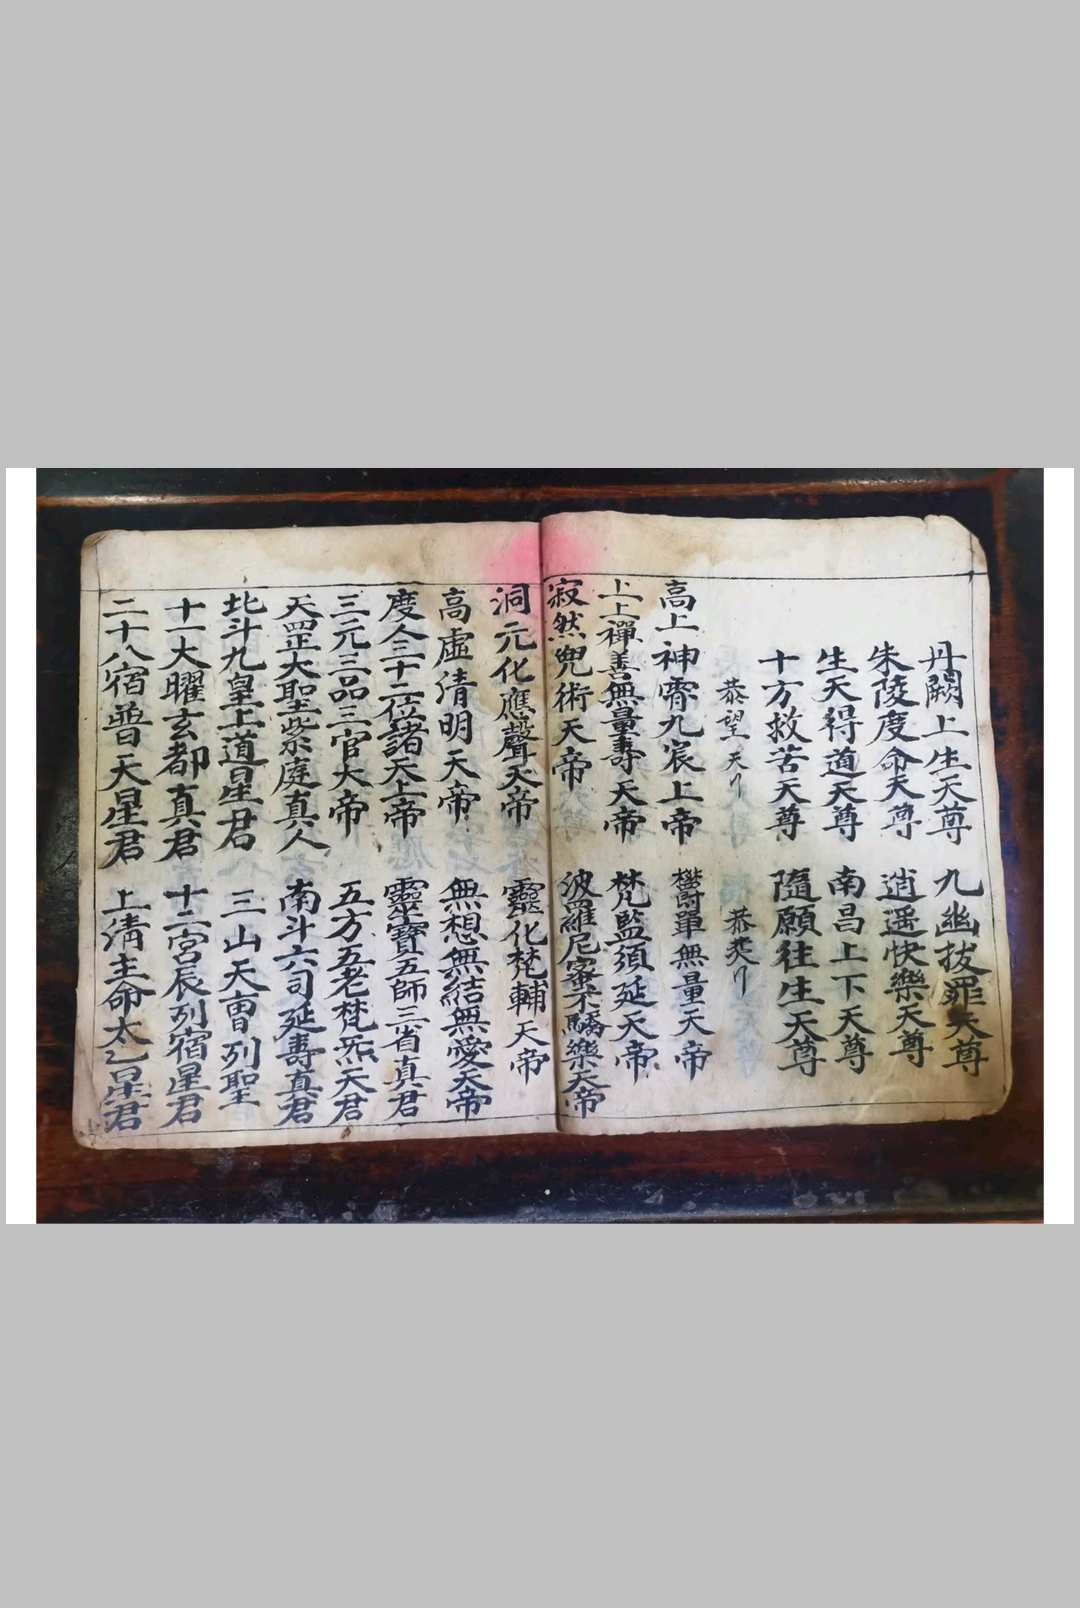 丹闕上生天尊　九幽拔罪天尊
朱陵度命天尊　逍遥快樂天尊
生天得道天尊　南昌上下天尊
十方救苦天尊　隨願往生天尊
恭望天　恭炗
高上神霄九宸上帝　欝單無量天帝
上上禪善無量壽天帝　梵監須延天帝
寂然兜術天帝　波羅尼蜜不驕樂天帝
洞元化應聲天帝　靈化梵輔天帝
高虛清明天帝　無想無結無愛天帝
度仝三十二位諸天上帝　靈寶五師三省真君
三元三品三官大帝　五方五老梵炁天君
天罡大聖紫庭真人　南斗六司延壽真君
北斗九皇上道星君　三山天曹列聖
十一大曜玄都真君　十二宮辰列宿星君
二十八宿普天星君　上清主命太乙星君